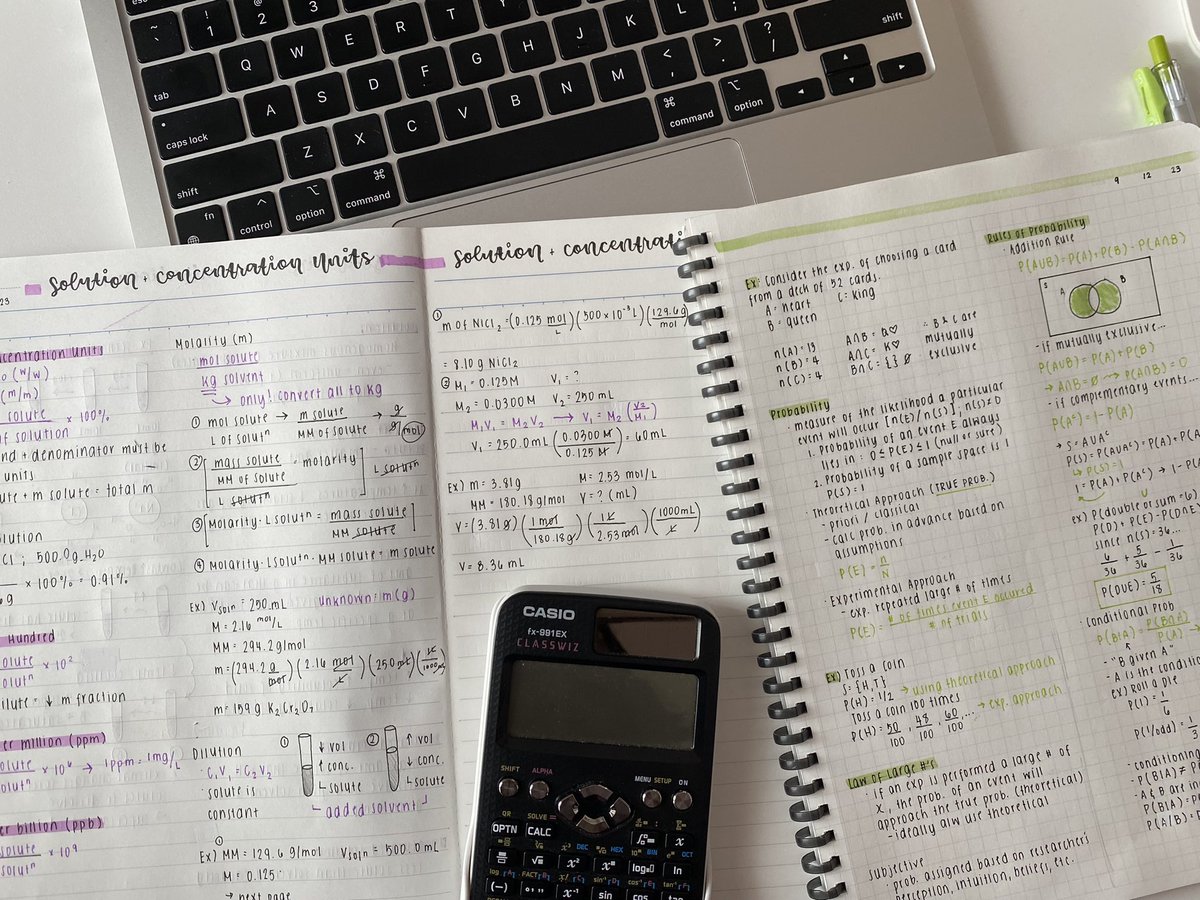 esc
! 1
@ 2
# 3
~ `
Q W E R T Y
tab
A S D F G H J K L
caps lock
Z X C V B N M < , > . ? /
shift
shift
fn
control
option
command
command
option
23
solution + concentration units
concentration units
(w/w)
(m/m)
solute × 100%
of solution
denominator must be
units
m solute = total m
500.0g H₂O
× 100% = 0.91%
Hundred
× 10²
↓ m fraction
million (ppm)
× 10⁶ → 1ppm = 1mg/L
billion (ppb)
× 10⁹
Molarity (m)
mol solute
kg solvent
→ only! convert all to kg
① mol solute → m solute → g
L of solutⁿ MM of solute g/mol
② mass solute = molarity
MM of solute
L solutⁿ L solutⁿ
③ [Molarity · L solutⁿ = mass solute]
MM solute
④ Molarity · L solutⁿ · MM solute = m solute
Ex) Vsoln = 250mL unknown = m(g)
M = 2.16 mol/L
MM = 294.2g/mol
m = (294.2 g/mol)(2.16 mol/L)(250mL)(1L/1000mL)
m = 159 g K₂Cr₂O₇
Dilution
C₁V₁ = C₂V₂
solute is
constant
① ↓ vol
↑ conc.
solute
② ↑ vol
↓ conc.
solute
added solvent
①
Ex) MM = 129.6 g/mol Vsoln = 500.0 mL
M = 0.125
→ next page
solution + concentrati
① m of NiCl₂ = (0.125 mol/L)(500×10⁻³L)(129.6g/mol)
= 8.10 g NiCl₂
② M₁ = 0.125M V₁ = ?
M₂ = 0.0300M V₂ = 250 mL
M₁V₁ = M₂V₂ → V₁ = M₂(V₂/M₁)
V₁ = 250.0mL (0.0300M/0.125M) = 60mL
Ex) m = 3.81g M = 2.53 mol/L
MM = 180.18g/mol V = ? (mL)
V = (3.81g)(1mol/180.18g)(1L/2.53mol)(1000mL/L)
V = 8.36 mL
CASIO
fx-991EX
CLASSWIZ
SHIFT ALPHA MENU SETUP ON
QR SOLVE =
OPTN CALC x
DEC HEX BIN OCT
√ x² ln
FACT
(−) x⁻¹ sin cos tan
9 12 23
Ex: Consider the exp. of choosing a card
from a deck of 52 cards.
A = heart C = king
B = queen
n(A) = 13 A∩B = Q♡ ∴ B & C are
n(B) = 4 A∩C = K♡ mutually
n(C) = 4 B∩C = {} ∅ exclusive
Probability
- measure of the likelihood a particular
event will occur [n(E)/n(s)], n(s)≠0
1. Probability of an event E always
lies in: 0≤P(E)≤1 (null or sure)
2. Probability of a sample space is 1
P(S) = 1
Theoretical Approach (TRUE PROB.)
- priori / classical
- calc prob. in advance based on
assumptions
P(E) = n/N
- Experimental Approach
- exp. repeated large # of times
P(E) = # of times event E occured
# of trials
Ex) Toss a coin
S = {H,T}
P(H) = 1/2 → using theoretical approach
Toss a coin 100 times
P(H) = 50/100, 48/100, 60/100, ... → exp. approach
Law of Large #'s
- if an exp is performed a large # of
x, the prob. of an event will
approach the true prob. (theoretical)
- ideally alw use theoretical
subjective
- prob. assigned based on researchers
perception, intuition, beliefs, etc.
Rules of Probability
- Addition Rule
P(A∪B) = P(A) + P(B) - P(A∩B)
S A B
- if mutually exclusive...
P(A∪B) = P(A) + P(B)
→ A∩B = ∅ → P(A∩B) = 0
- if complementary events...
P(Aᶜ) = 1 - P(A)
→ S = A∪Aᶜ
P(S) = P(A∪Aᶜ) = P(A) + P(A
→ P(S) = 1
1 = P(A) + P(Aᶜ) → 1 - P(
ex) P(double or sum = 6)
P(D) + P(E) - P(D∩E
since n(s) = 36...
6/36 + 5/36 - 1/36
P(D∪E) = 5/18
- Conditional Prob
P(B|A) = P(B∩A)/P(A) →
- "B given A"
- A is the condition
ex) roll a die
P(1) = 1/6
P(1/odd) = 1/3
- conditioning
- P(B|A) ≠ P
- A & B are in
P(B|A) =
P(A/B) =